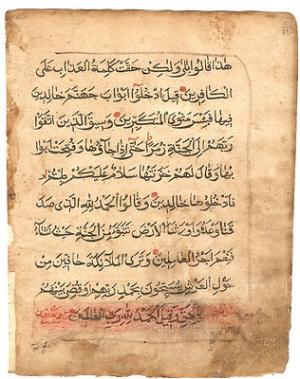 هذا قالوا بلى ولكن حقت كلمة العذاب على
الكافرين قيل ادخلوا ابواب جهنم خالدين
فيها فبئس مثوى المتكبرين وسيق الذين اتقوا
ربهم الى الجنة زمرا حتى اذا جاؤها وفتحت ابوا
بها وقال لهم خزنتها سلام عليكم طبتم
فادخلوها خالدين وقالوا الحمد لله الذي صد
قنا وعده واورثنا الارض نتبوء من الجنة حيث نشاء
فنعم اجر العاملين وترى الملائكة حافين من
حول العرش يسبحون بحمد ربهم وقضى بينهم
بالحق وقيل الحمد لله رب العالمين